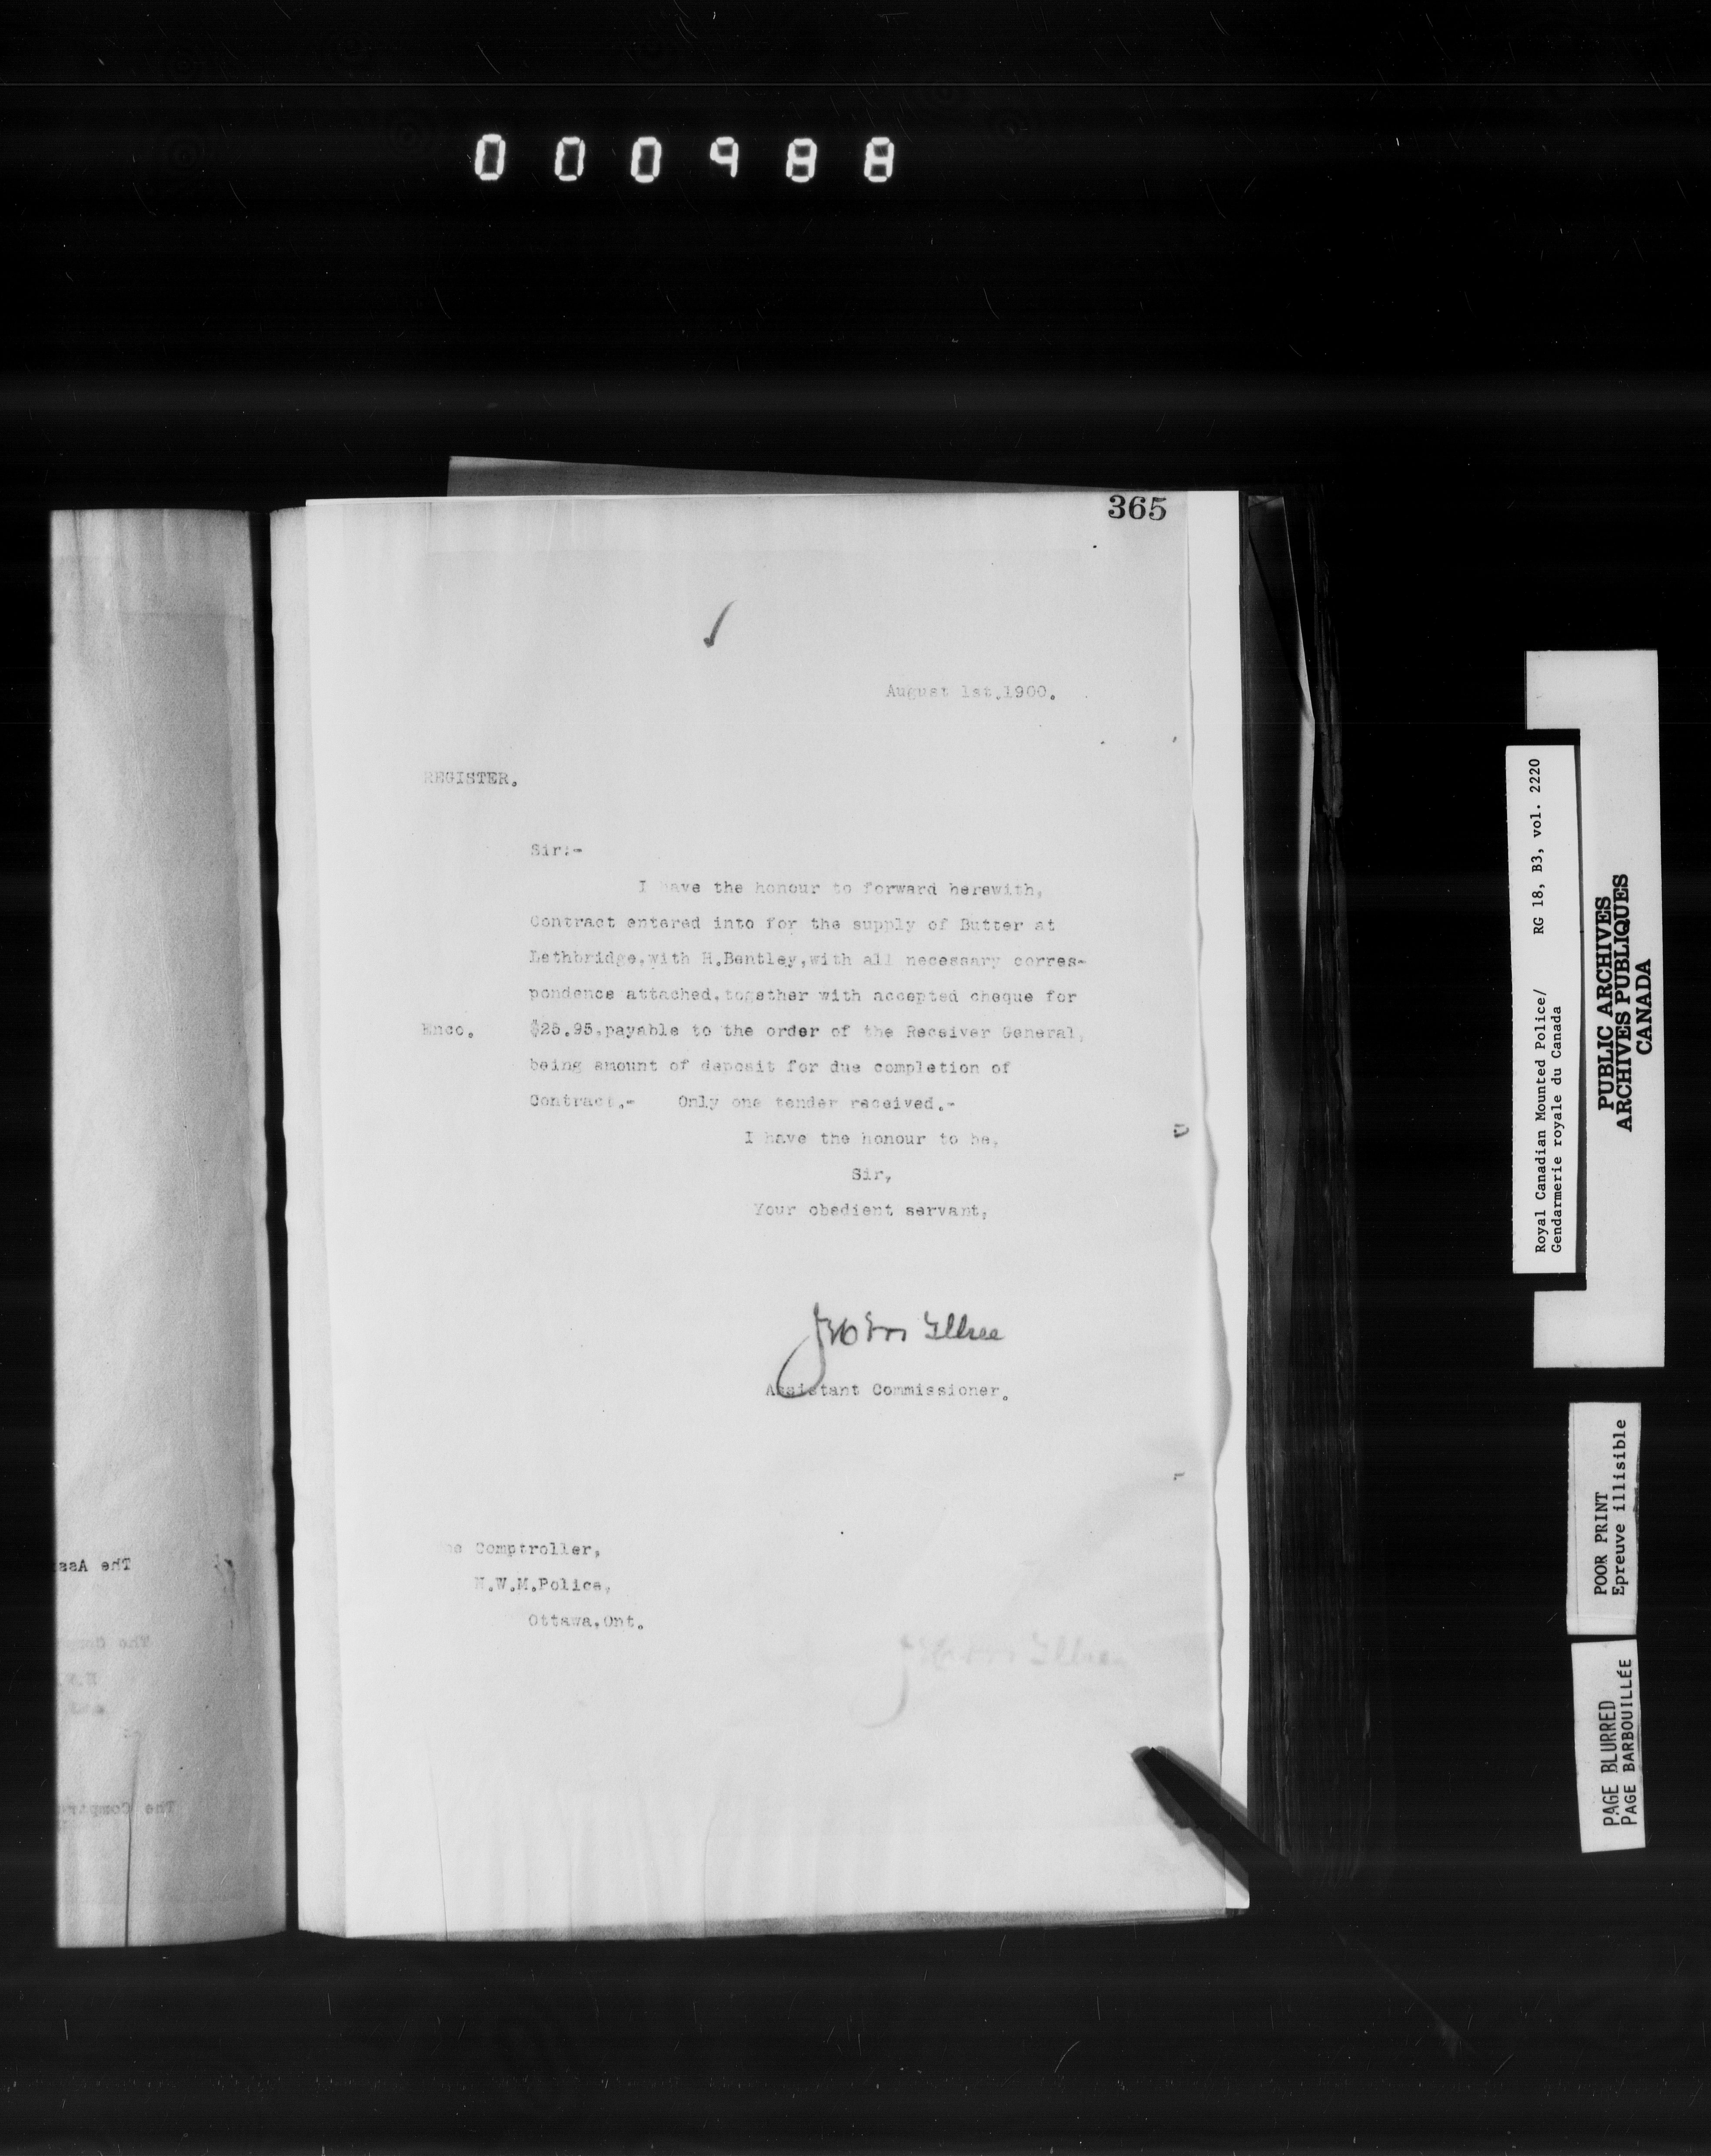 000988
365
August 1st.1900.
REGISTER.
Sir:-
I have the honour to forward herewith,
Contract entered into for the supply of Butter at
Lethbridge,with H.Bentley,with all necessary corres-
pondence attached,together with accepted cheque for
Enco. $25.95,payable to the order of the Receiver General,
being amount of deposit for due completion of
Contract.- Only one tender received.-
I have the honour to be,
Sir,
Your obedient servant,
Assistant Commissioner.
The Comptroller,
N.W.M.Police,
Ottawa,Ont.
The Ass
The Comp
The Comptr
Royal Canadian Mounted Police/ RG 18, B3, vol. 2220
Gendarmerie royale du Canada
PUBLIC ARCHIVES
ARCHIVES PUBLIQUES
CANADA
POOR PRINT
Epreuve illisible
PAGE BLURRED
PAGE BARBOUILLÉE